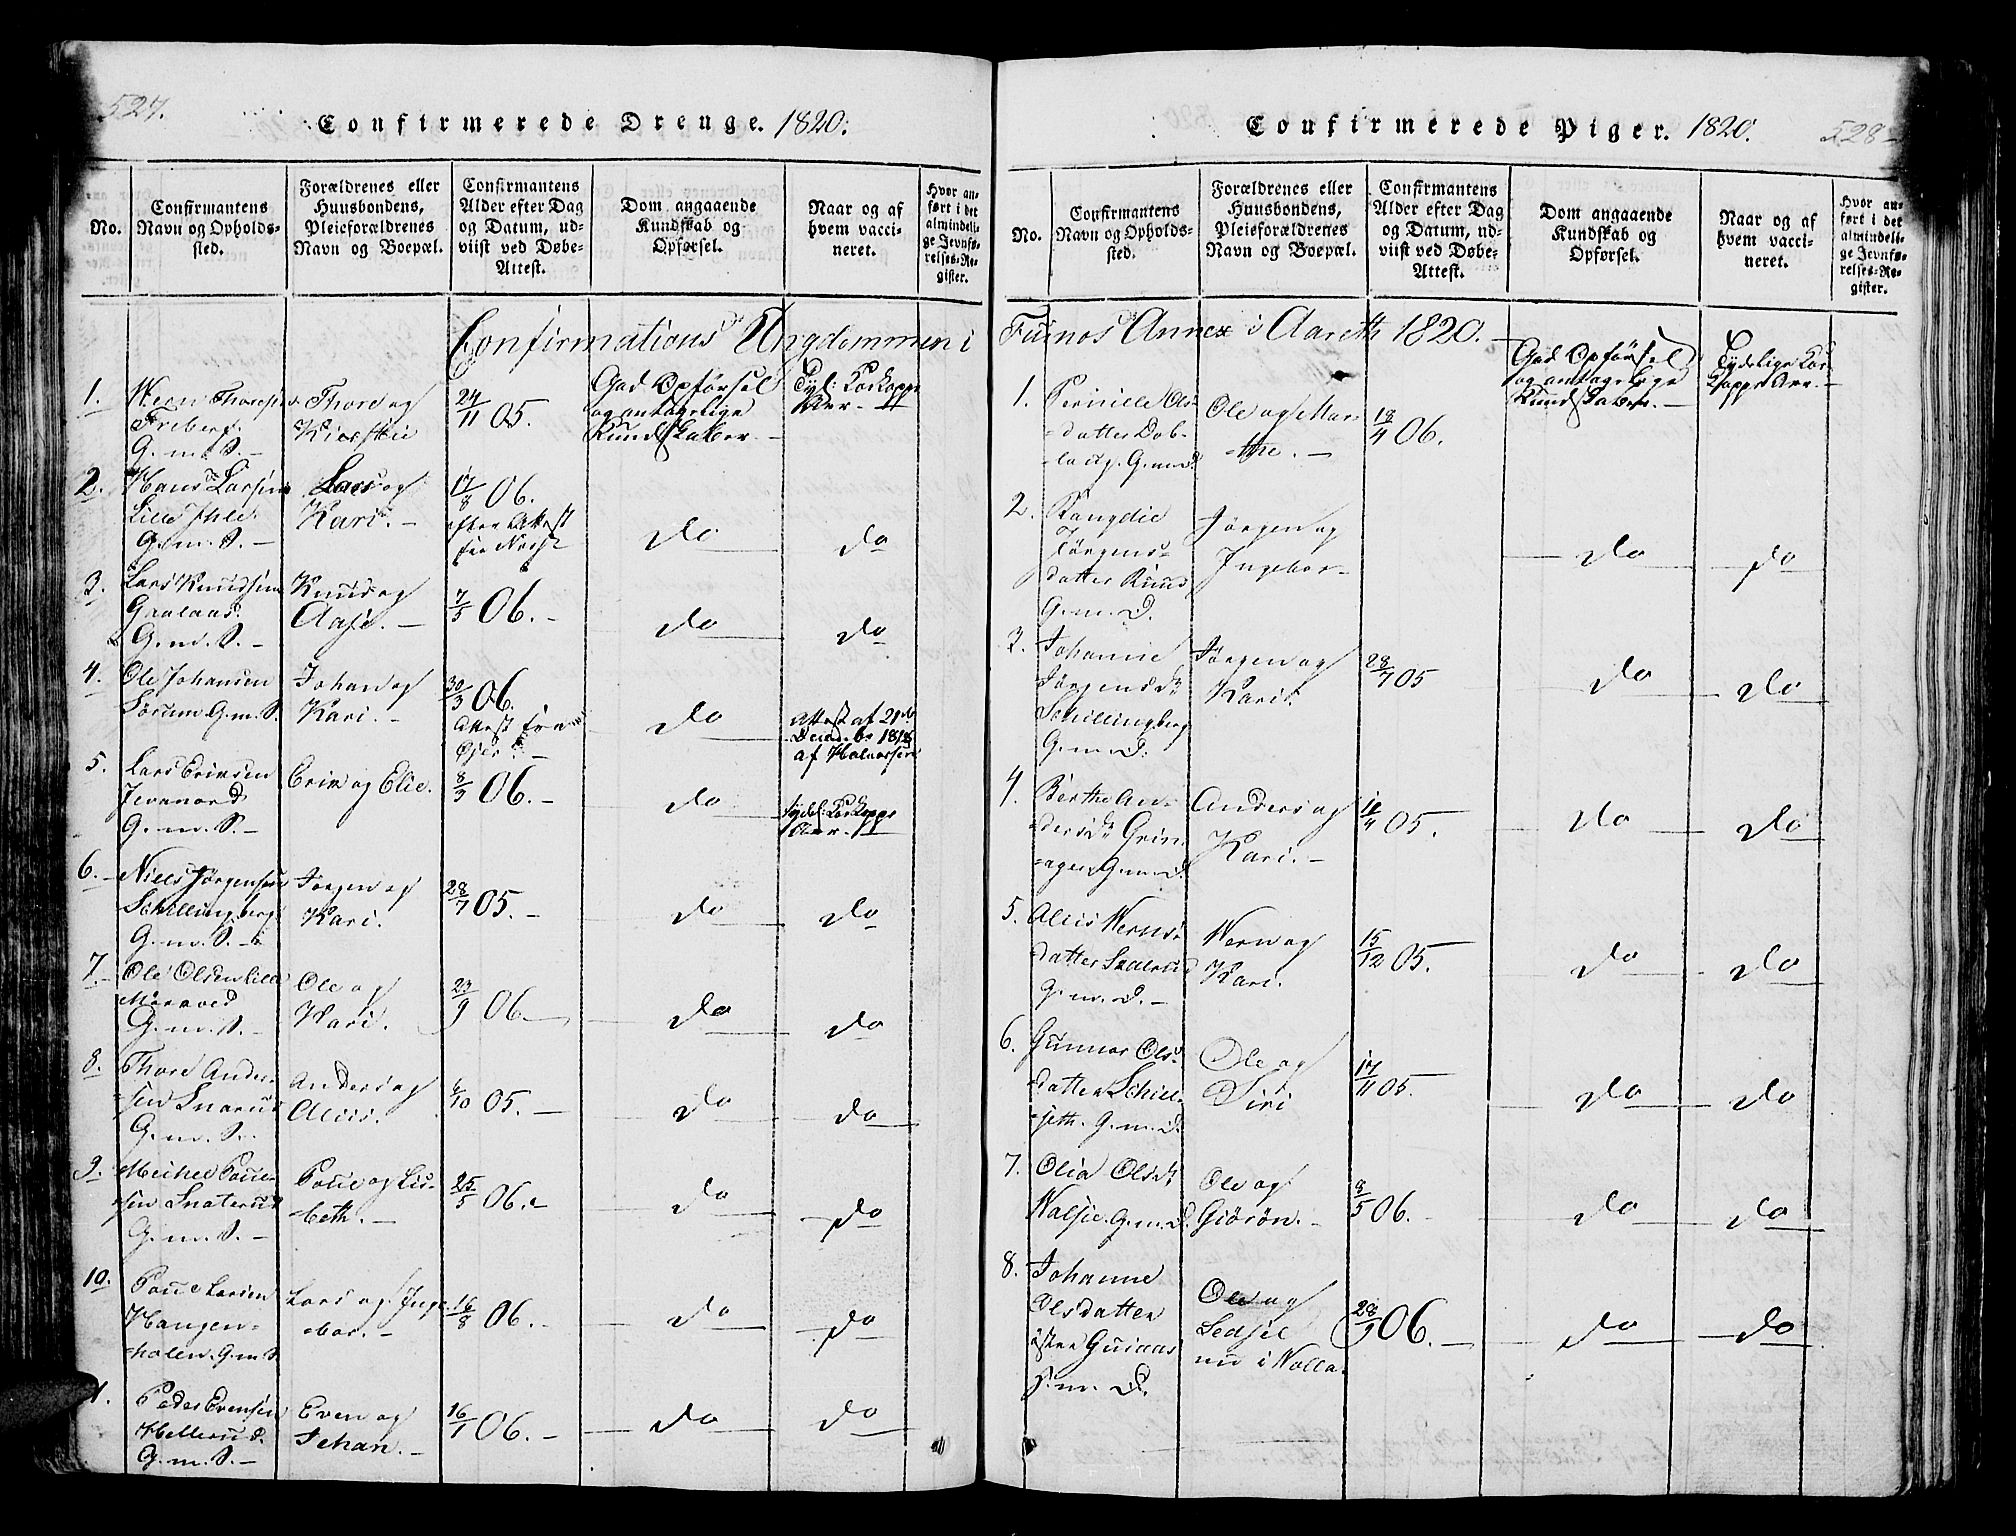 527.
Confirmerede Drenge. 1820.
No.
Confirmantens
Navn og Opholds-
sted.
Forældrenes eller
Huusbondens,
Pleieforældrenes
Navn og Boepæl.
Confirmantens
Alder efter Dag
og Datum, ud-
viist ved Døbe-
Attest.
Dom angaaende
Kundskab og
Opførsel.
Naar og af
hvem vacci-
neret.
Hvor an-
ført i det
almindeli-
ge Jevnfø-
relses-Re-
gister.
Confirmations Ungdommen i
1.
Thoresen
Friberg
G. m. S. —
Thore og
Kiersti
24/11 05.
God Opførsel
og antagelige
Kundskaber. —
Tyd: Koekoppe
Arr. —
2.
Hans Larsen
Lille Ihle.
G. m. S. —
Lars og
Kari. —
17/8 06.
efter Attest
fra
do
do
3.
Lars Knudsen
Gaalaas.
G. m. S. —
Knud og
Aase. —
7/5 06. —
do
do
4.
Ole Johansen
Sørum G. m. S.
Johan og
Kari. —
30/3 06.
Attest fra
do
Attest af 21de
Decbr. 1818
af Halvorsen
5.
Lars Erichsen
G. m. S. —
Erik og Elie.
8/3 06. —
do
tydel: Koekoppe
Arr. —
6. —
Niels Jørgensen
Schillingberg
G. m. S. —
Jørgen og
Kari.
28/7 05. —
do
do
7. —
Ole Olsen Lille
G. m. S. —
Ole og
Kari.
23/9 06. —
do
do
8.
Thore Ander-
sen Snarud
G. m. S. —
Anders og
Alis.
6/10 05. —
do
do
9.
Michel Poul-
sen Snaterud
G. m. S. —
Poul og Lis-
beth. —
25/5 06. —
do
do
10.
Poul Larsen
Haugen-
holen. G. m. S.
Lars og Inge-
bor. —
16/8 06. —
do
do
Peder Evensen
Hellerud.
G. m. S. —
Even og
Johan. —
16/1 06. —
do
do
Confirmerede Piger. 1820.
528
No.
Confirmantens
Navn og Opholds-
sted.
Forældrenes eller
Huusbondens,
Pleieforældrenes
Navn og Boepæl.
Confirmantens
Alder efter Dag
og Datum, ud-
viist ved Døbe-
Attest.
Dom angaaende
Kundskab og
Opførsel.
Naar og af
hvem vacci-
neret.
Hvor an-
ført i det
almindeli-
ge Jevnfø-
relses-Re-
gister.
Furnos Annex i Aareth 1820. —
1.
Pernille Ols-
datter Dob-
G. m. D.
Ole og Mar-
the. —
18/4 06.
God Opførsel
og antagelige
Kundskaber. —
Tydelige Koe-
koppe Arr. —
2.
Rangdie
Jørgens-
datter Ruud
G. m. D.
Jørgen og
Ingebor-
do
do
3.
Johanne
Jørgensdr
Schillingberg
G. m. D.
Jørgen og
Kari.
28/7 05
do
do
4.
Berthe An-
dersdr Grim-
ager G. m. D.
Anders og
Kari. —
05.
do
do
5.
Aliis Werns-
datter
G. m. D. —
Wern og
Kari.
15/12 05.
do
do
6.
Gunnor Ols-
datter Schiel-
seth. G. m. D.
Ole og
Siri
17/11 05.
do
do
7.
Olia Olsdr
Walsie. G. m. D.
Ole og
Giörön. —
8/5 06. —
do
do
8.
Johanne
Olsdatter
G. m. D.
Ole og
Sedsil
nu i Wolla.
28/9 06. —
do
do